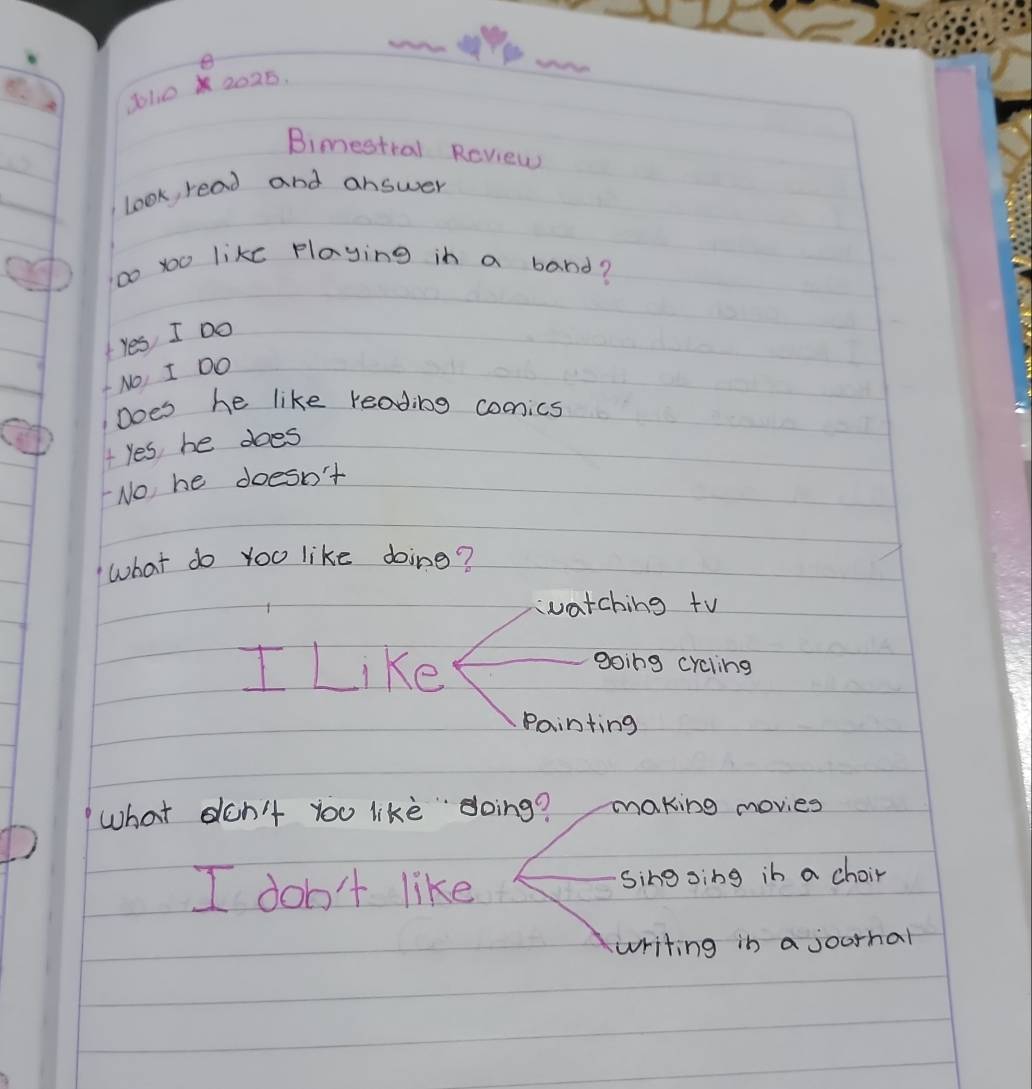 Julio 8 2025.
Bimestral Review
Look, read and answer
Do you like Playing in a band?
+ Yes, I DO
- No, I DO
Does he like reading comics
+ Yes, he does
- No, he doesn't
What do you like doing?
I Like
watching tv
going cycling
Painting
What don't you like doing?
making movies
I don't like
singing in a choir
writing in a journal